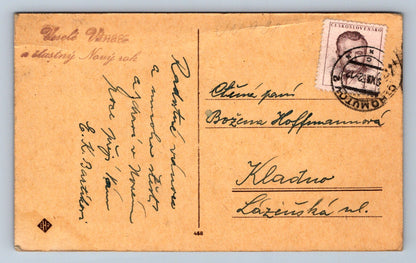 Veselé Vánoce
a šťastný Nový rok
Radostné vánoce
a mnoho štěstí
a zdraví v Novém
roce přejí Vám
E. K. Bartákovi
ČESKOSLOVENSKO
OLOMOUC 2
Ctěná paní
Božena Hoffmannová
Kladno
Lázeňská ul.
468